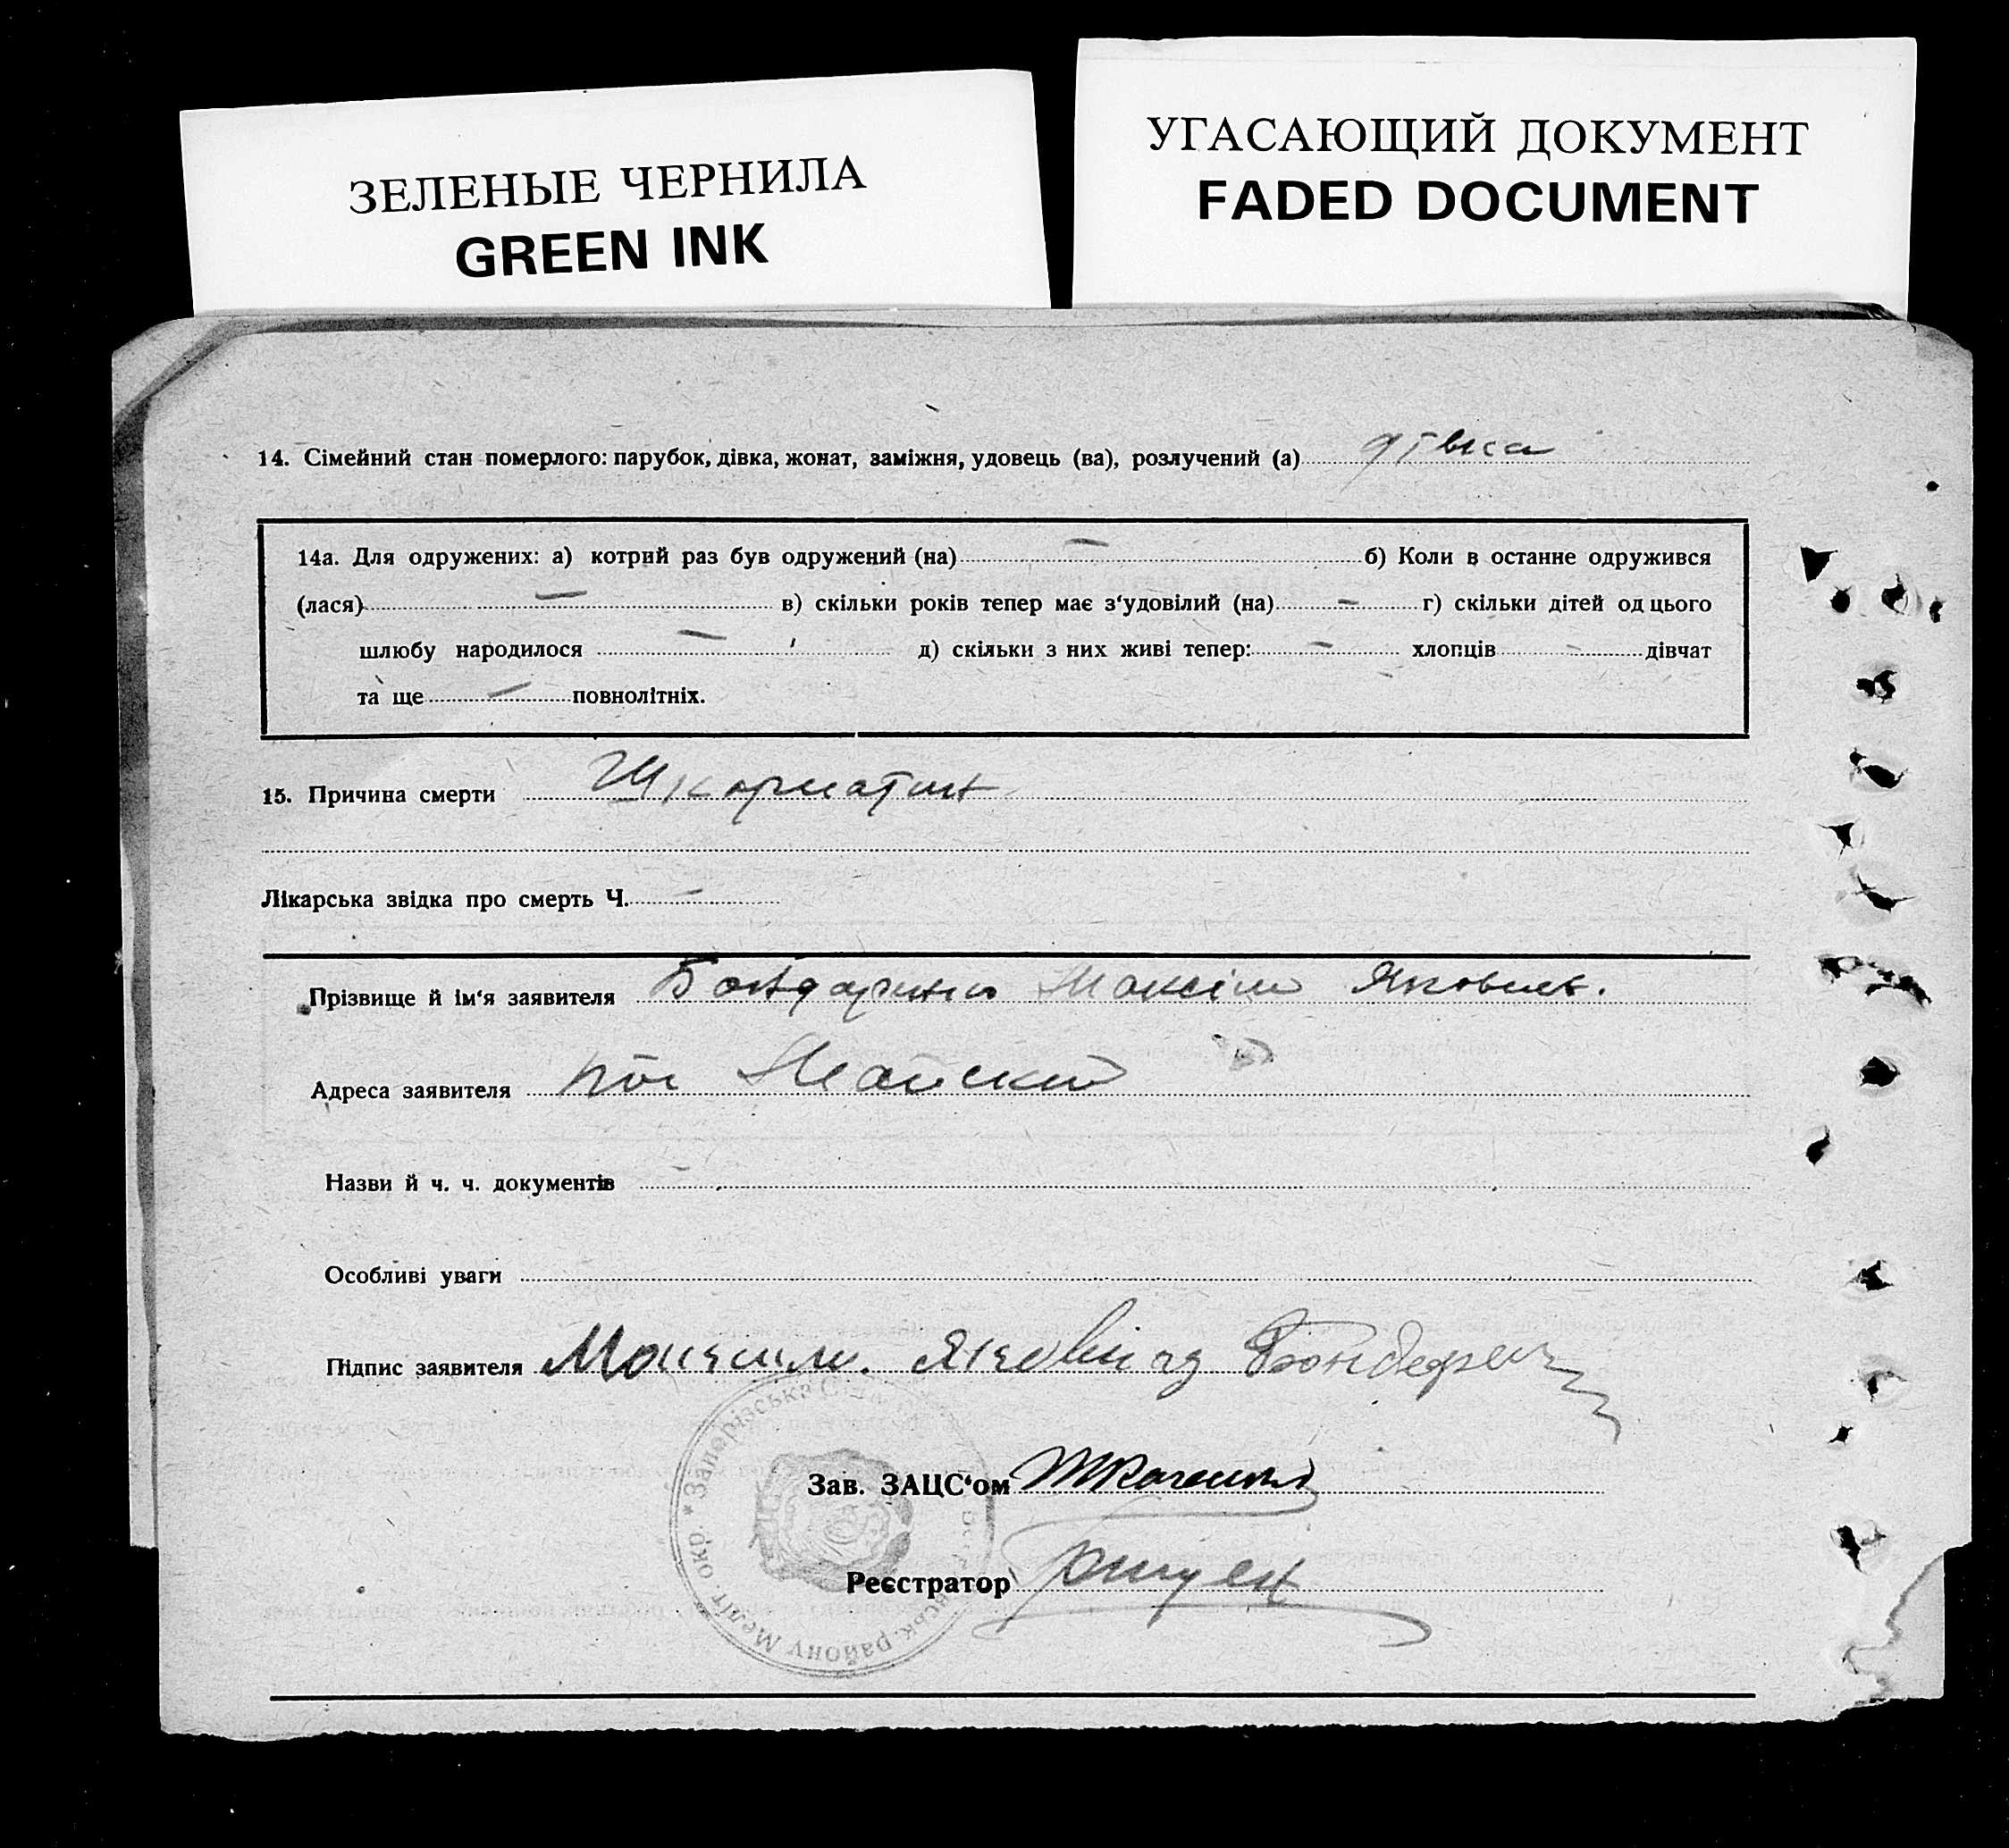 ЗЕЛЕНЫЕ ЧЕРНИЛА
GREEN INK
УГАСАЮЩИЙ ДОКУМЕНТ
FADED DOCUMENT
14. Сімейний стан померлого: парубок, дівка, жонат, заміжня, удовець (ва), розлучений (а) дівка
14а. Для одружених: а) котрий раз був одружений (на) — б) Коли в останне одружився
(лася) — в) скільки років тепер має з‘удовілий (на) — г) скільки дітей од цього
шлюбу народилося — д) скільки з них живі тепер: — хлопців - дівчат
та ще — повнолітніх.
15. Причина смерти Шкарлатин
Лікарська звідка про смерть Ч. —
Прізвище й ім‘я заявителя Максім Яковлев.
Адреса заявителя пос Майский
Назви й ч. ч. документів -
Особливі уваги
Підпис заявителя
Зав. ЗАЦС‘ом
Реєстратор
* Запорізська Сіль району Меліт окр.